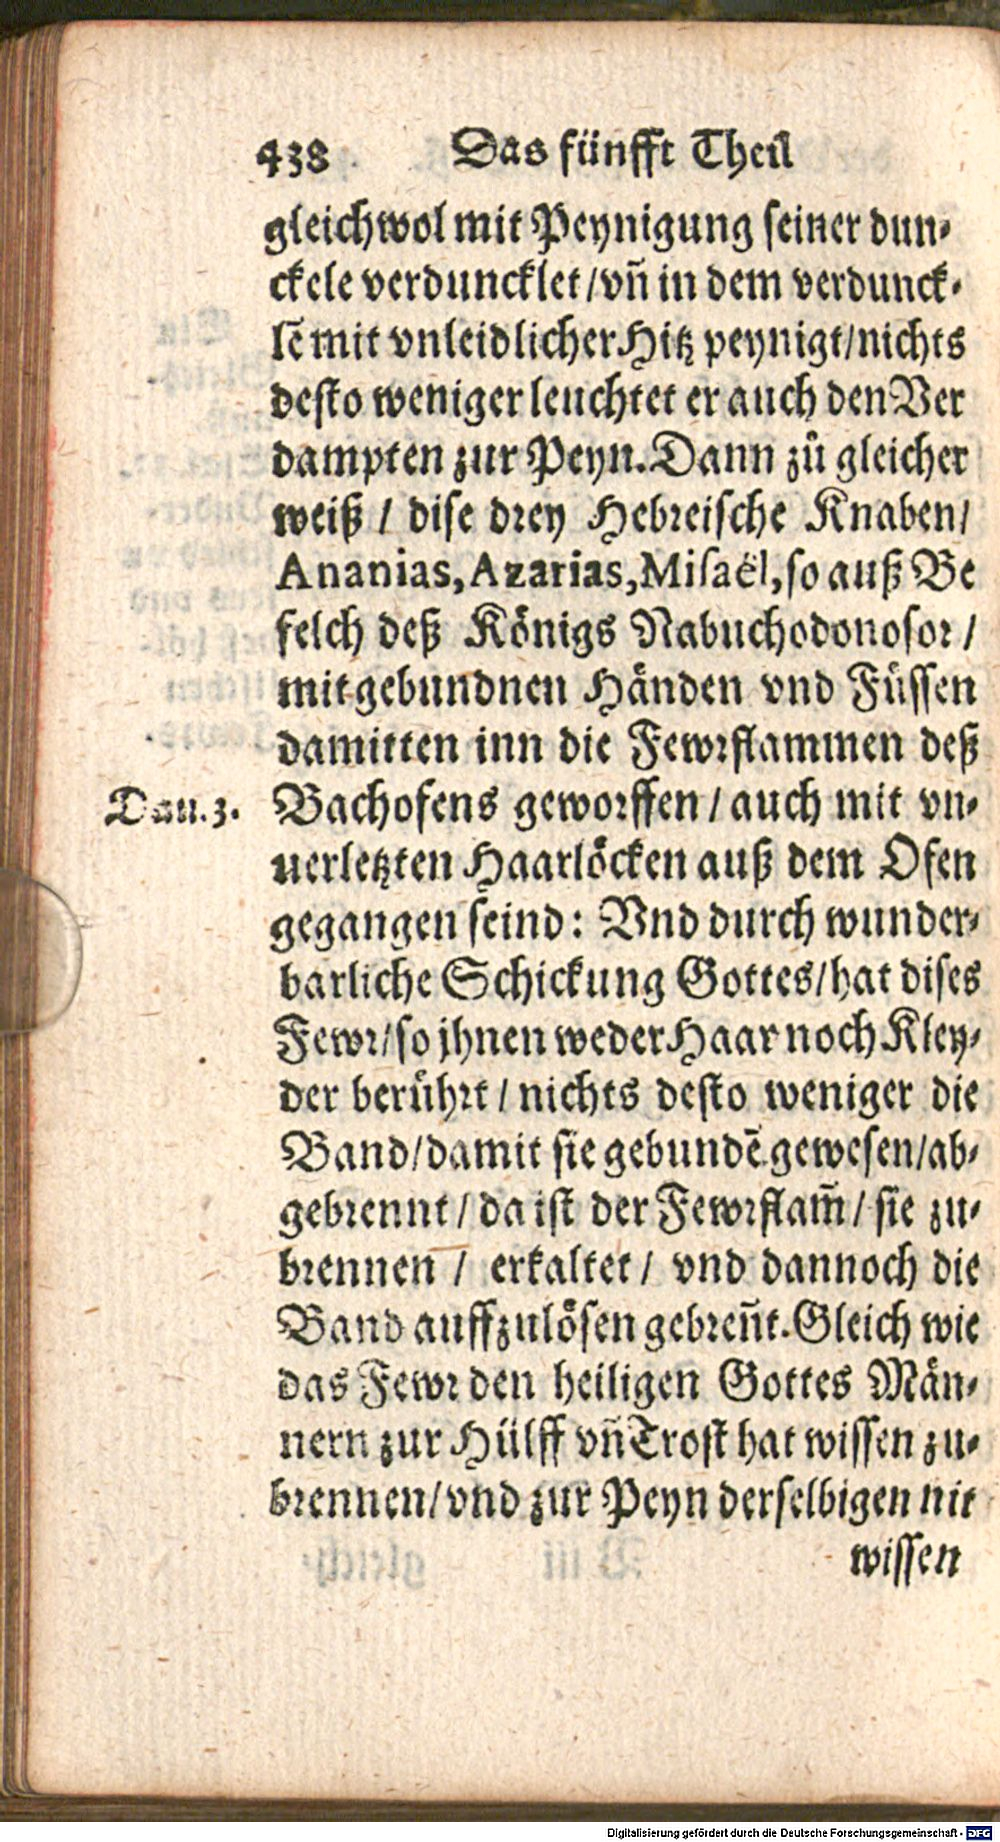 438 Das fünfft Theil
gleichwol mit Peynigung seiner dun-
ckele verduncklet/vn̄ in dem verdunck-
lē mit vnleidlicher Hitz peynigt/nichts
desto weniger leuchtet er auch den Ver
dampten zur Peyn. Dann zů gleicher
weiß / dise drey Hebreische Knaben/
Ananias, Azarias, Misaël, so auß Be
felch deß Königs Nabuchodonosor /
mit gebundnen Händen vnd Füssen
damitten inn die Fewrflammen deß
Dan. 3.
Bachofens geworffen / auch mit vn-
uerletzten Haarlöcken auß dem Ofen
gegangen seind: Vnd durch wunder-
barliche Schickung Gottes/hat dises
Fewr/so jhnen weder Haar noch Kley-
der berührt / nichts desto weniger die
Band/damit sie gebundē gewesen/ab-
gebrennt / da ist der Fewrflam̄ / sie zu-
brennen / erkaltet / vnd dannoch die
Band auffzulösen gebren̄t. Gleich wie
das Fewr den heiligen Gottes Män-
nern zur Hülff vn̄ Trost hat wissen zu-
brennen/vnd zur Peyn derselbigen nit
wissen
Digitalisierung gefördert durch die Deutsche Forschungsgemeinschaft - DFG